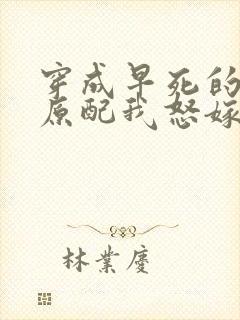 穿成早死的
原配我怒嫁
林業慶